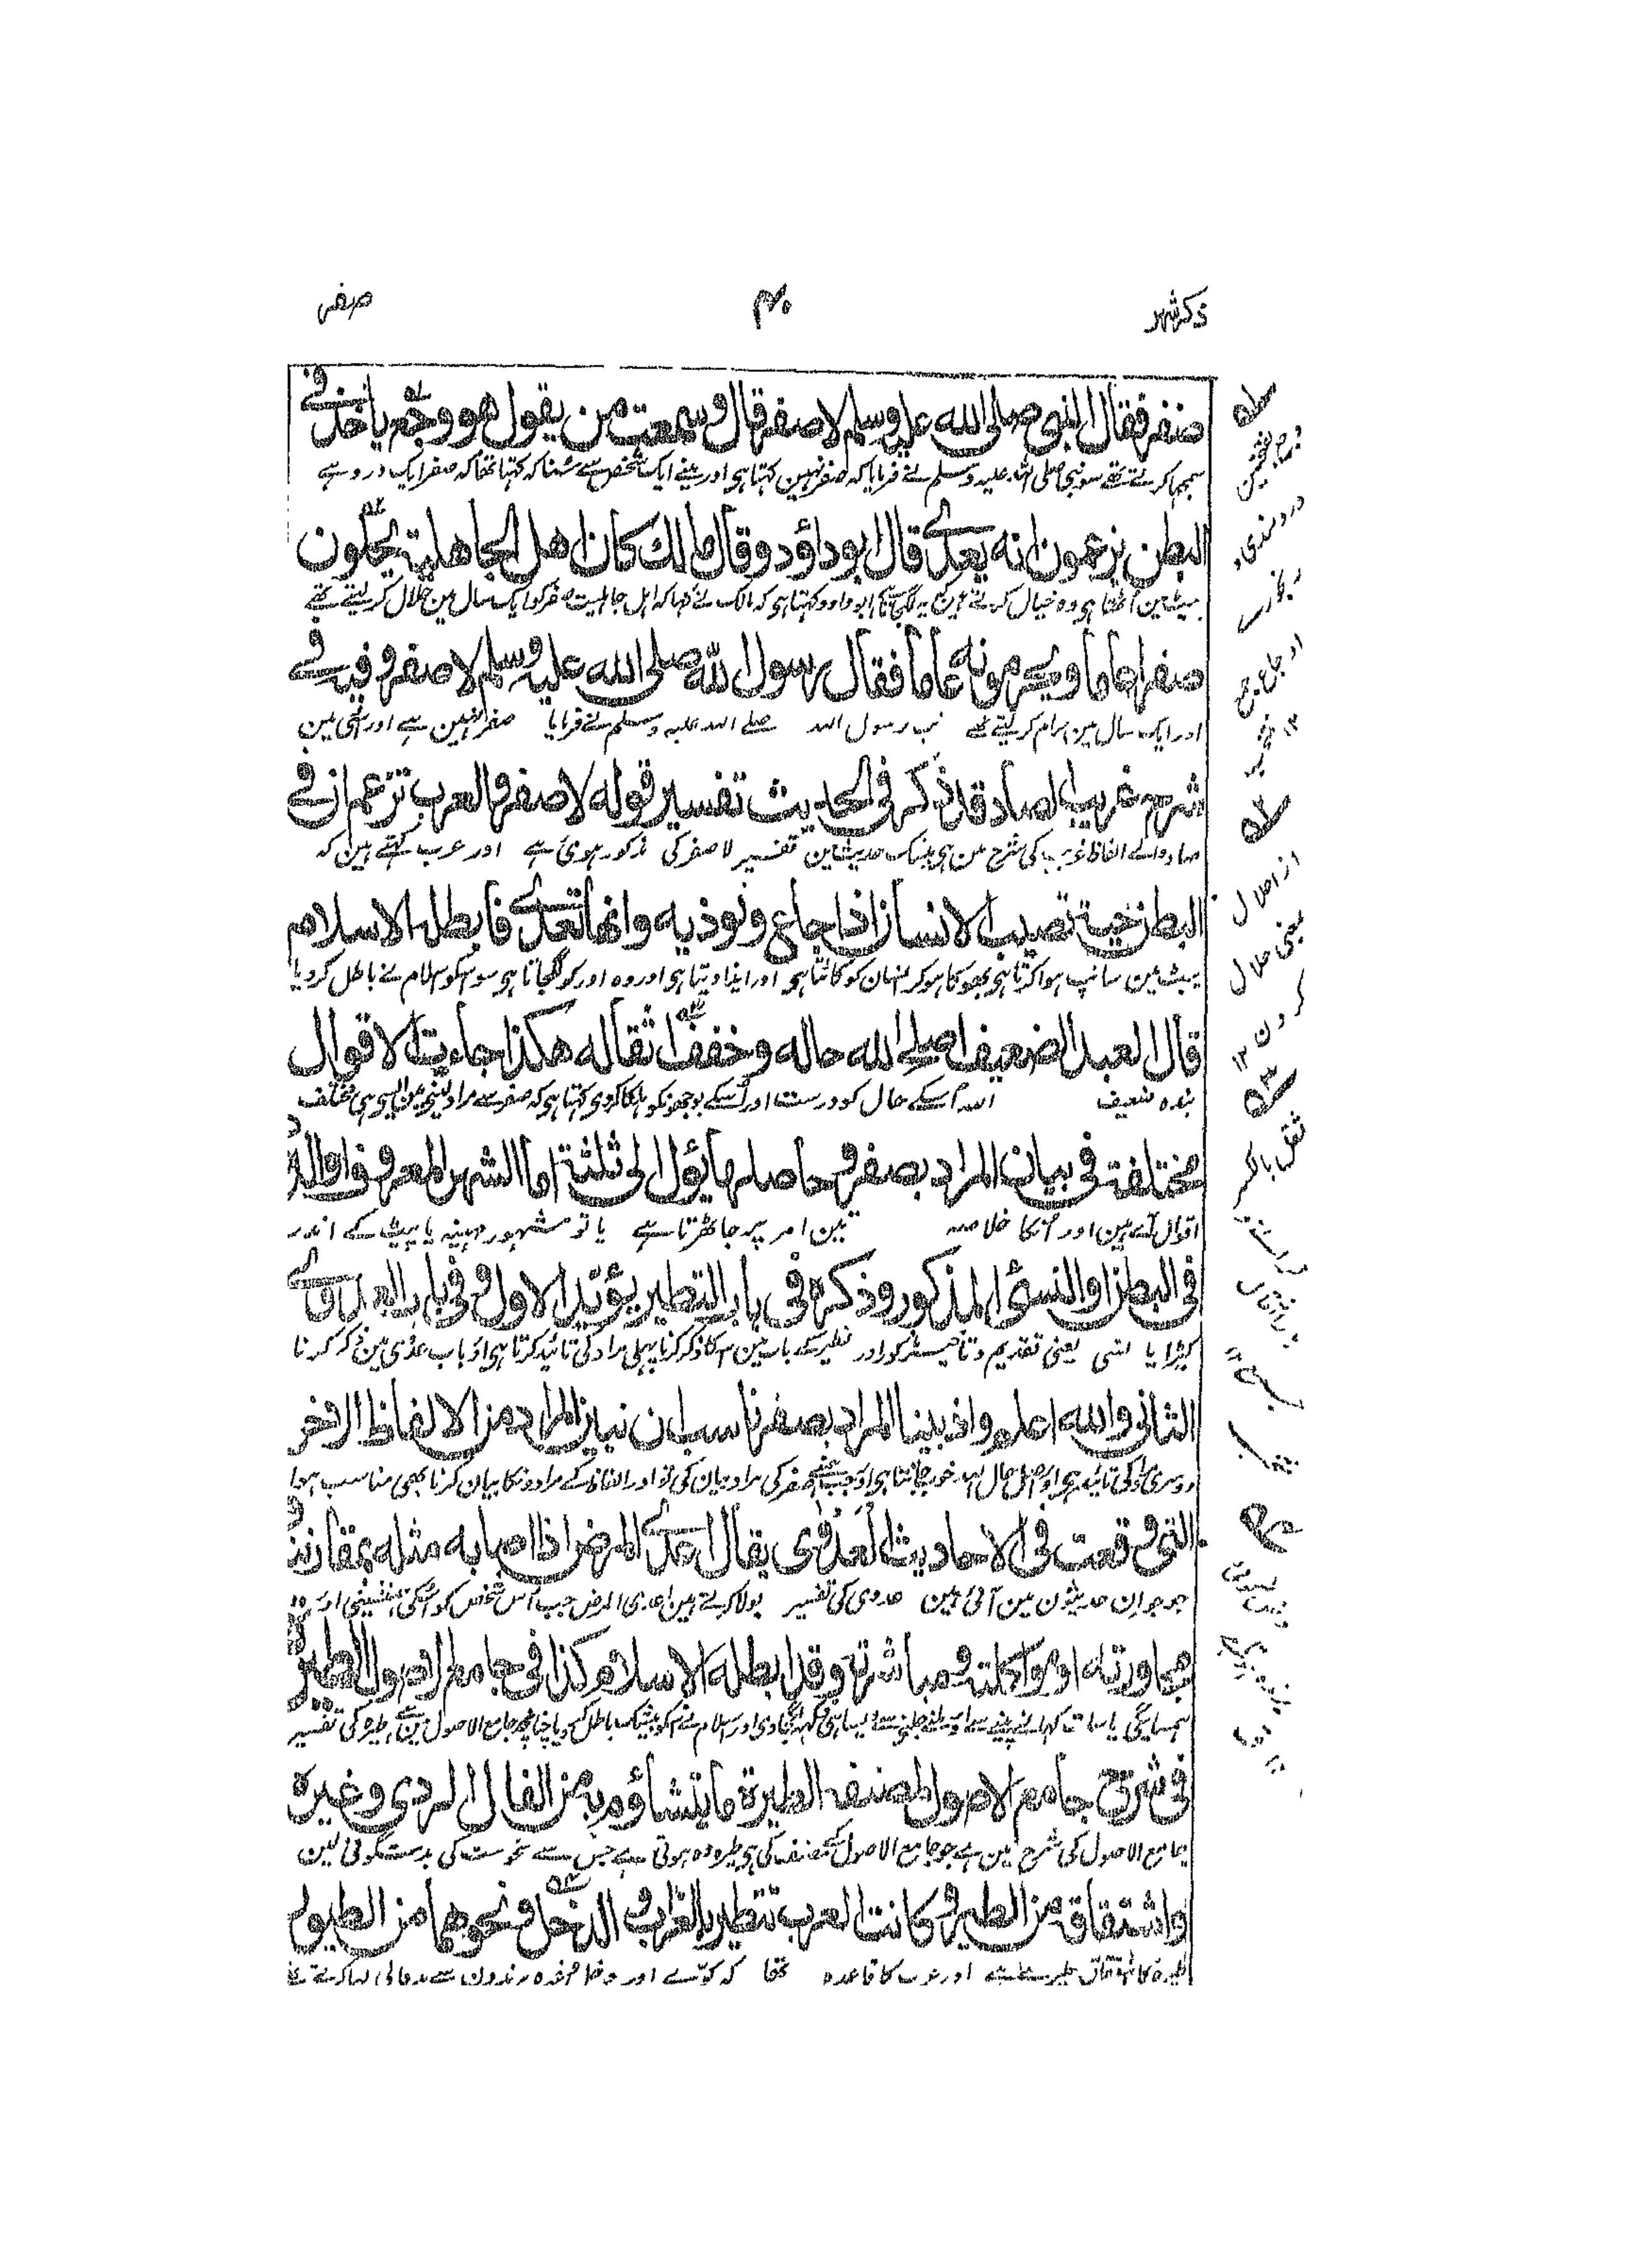 ذکر شہر
۴۰
صفر
صفر فقال النبی صلی الله علیه وسلم لا صفر قال وسمعت من یقول هو وجع یاخذ فی
سمجھا کرتے تھے سو نبی صلی اللہ علیہ وسلم نے فرمایا کہ صفر نہین کہتا ہی اور مینے ایک شخص سے سُنا کہ کہتا تھا کہ صفر ایک درد ہے
البطن یزعمون انه یعدی قال ابو داؤد وقال مالك کان اهل الجاهلیة یحلون
پیٹ مین اُٹھتا ہی وہ خیال کرتے ہین یہ ابو داود کہتا ہی کہ مالک نے کہا کہ اہل جاہلیت صفر کو ایک سال مین حلال کر لیتے تھے
صفرا عاما ویحرمونه عاما فقال رسول الله صلی الله علیه وسلم لا صفر وفیه فی
اور ایک سال مین حرام کر لیتے تھے تب رسول اللہ صلے اللہ علیہ وسلم نے فرمایا صفر نہین ہے اور اسی مین
شرح غریب الصاد قد ذکر فی الحدیث تفسیر قوله لا صفر والعرب تزعم ان فی
صاد والے الفاظ غریب کی شرح مین ہی بیشک حدیث مین تفسیر لا صفر کی مذکور ہوئی ہے اور عرب کہتے ہین کہ
البطن حیة تصیب الانسان اذا جاع وتوذیه وانها تعدی فابطله الاسلام
پیٹ مین سانپ ہوا کرتا ہی بھوکا ہو کر انسان کو کاٹتا ہی اور ایذا دیتا ہی اور وہ اور کو لگجاتا ہی سو اسکو اسلام نے باطل کر دیا
قال العبد الضعیف اصلح الله حاله وخفف اثقاله هکذا جاءت الاقوال
بندہ ضعیف اللہ اسکے حال کو درست اور اُسکے بوجھونکو ہلکا کر دی کہتا ہی کہ صفر سے مراد لینے مین ایسی ہی مختلف
مختلفة فی بیان المراد بصفر وحاصلها یؤل الی ثلثة اما الشهر المعروف او الدود
اقوال آئے ہین اور اُنکا خلاصہ تین امر پر جا ٹھرتا ہے یا تو مشہور مہینہ یا پیٹ کے اندر
فی البطن او النسئ المذکور وذکره فی باب التطیر یؤید الاول وفی باب العدوی
کیڑا یا نسی یعنی تقدیم و تاخیر مذکور اور تطیر کے باب مین اسکا ذکر کرنا پہلی مراد کی تائید کرتا ہی اور باب عدوی مین ذکر کرنا
الثانی والله اعلم واذ بینا المراد بصفر ناسب ان نبین المراد من الالفاظ الاخر
دوسری مراد کی تائید ہی اور اصل حال اللہ خوب جانتا ہی اور جب ہمنے صفر کی مراد بیان کی تو اور الفاظ کے مرادونکا بیان کرنا بھی مناسب ہوا
التی وقعت فی الاحادیث العدوی یقال اعدی المرض اذا اصابه مثله بمقارنة
جو جو ان حدیثون مین آئی ہین عدوی کی تفسیر بولا کرتے ہین اعدی المرض جب اُس شخص کو اُسکی ہمنشینی اور
مجاورته او مواکلته ومباشرته وقد ابطله الاسلام کذا فی جامع الاصول الطیرة
فی شرح جامع الاصول لمصنفه الطیرة ما یتشاؤم به من الفال الردی وغیره
جامع الاصول کی شرح مین ہے جو جامع الاصول کے مصنف کی ہی طیرہ وہ ہوتی ہے جس سے نحوست کی بد شگونی لین
واشتقاقه من الطیر وکانت العرب تتطیر بالغراب و ونحوهما من الطیور
طیرة کا اشتقاق طیر سے ہے اور عرب کا قاعدہ تھا کہ کوّے اور پرندون سے بدفالی لیا کرتے تھے
از احلال
بمعنی حلال
کردن ۱۲
ثقل بالکسر